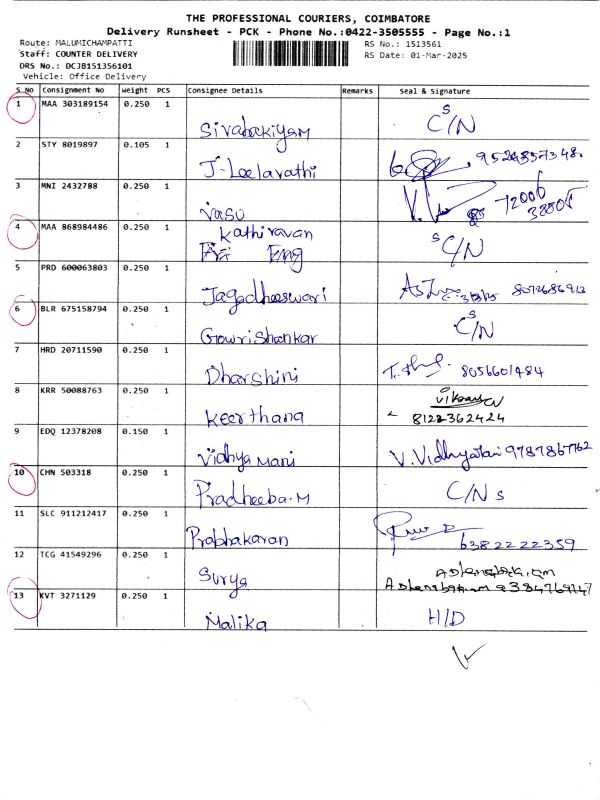 THE PROFESSIONAL COURIERS, COIMBATORE
Delivery Runsheet - PCK - Phone No.:0422-3505555 - Page No.:1
Route: MALUMICHAMPATTI RS No.: 1513561
Staff: COUNTER DELIVERY RS Date: 01-Mar-2025
DRS No.: DCJB151356101
Vehicle: Office Delivery
S No Consignment No Weight PCS Consignee Details Remarks Seal & Signature
1 MAA 303189154 0.250 1 Sivabakiyam S C/N
2 STY 8019897 0.105 1 J-Leelavathi
3 MNI 2432788 0.250 1 Vasu
4 MAA 868984486 0.250 1 Kathiravan S C/N
5 PRD 600063803 0.250 1 Jagadheeswari
6 BLR 675158794 0.250 1 GowriShankar S C/N
7 HRD 20711590 0.250 1 Dharshini 8056601484
8 KRR 50088763 0.250 1 Keerthana 8122362424
9 EDQ 12378208 0.150 1 Vidhya Mani
10 CHN 503318 0.250 1 Pradheeba.M C/N s
11 SLC 911212417 0.250 1 Prabhakaran 6382222359
12 TCG 41549296 0.250 1 Surya
13 KVT 3271129 0.250 1 Malika H/D